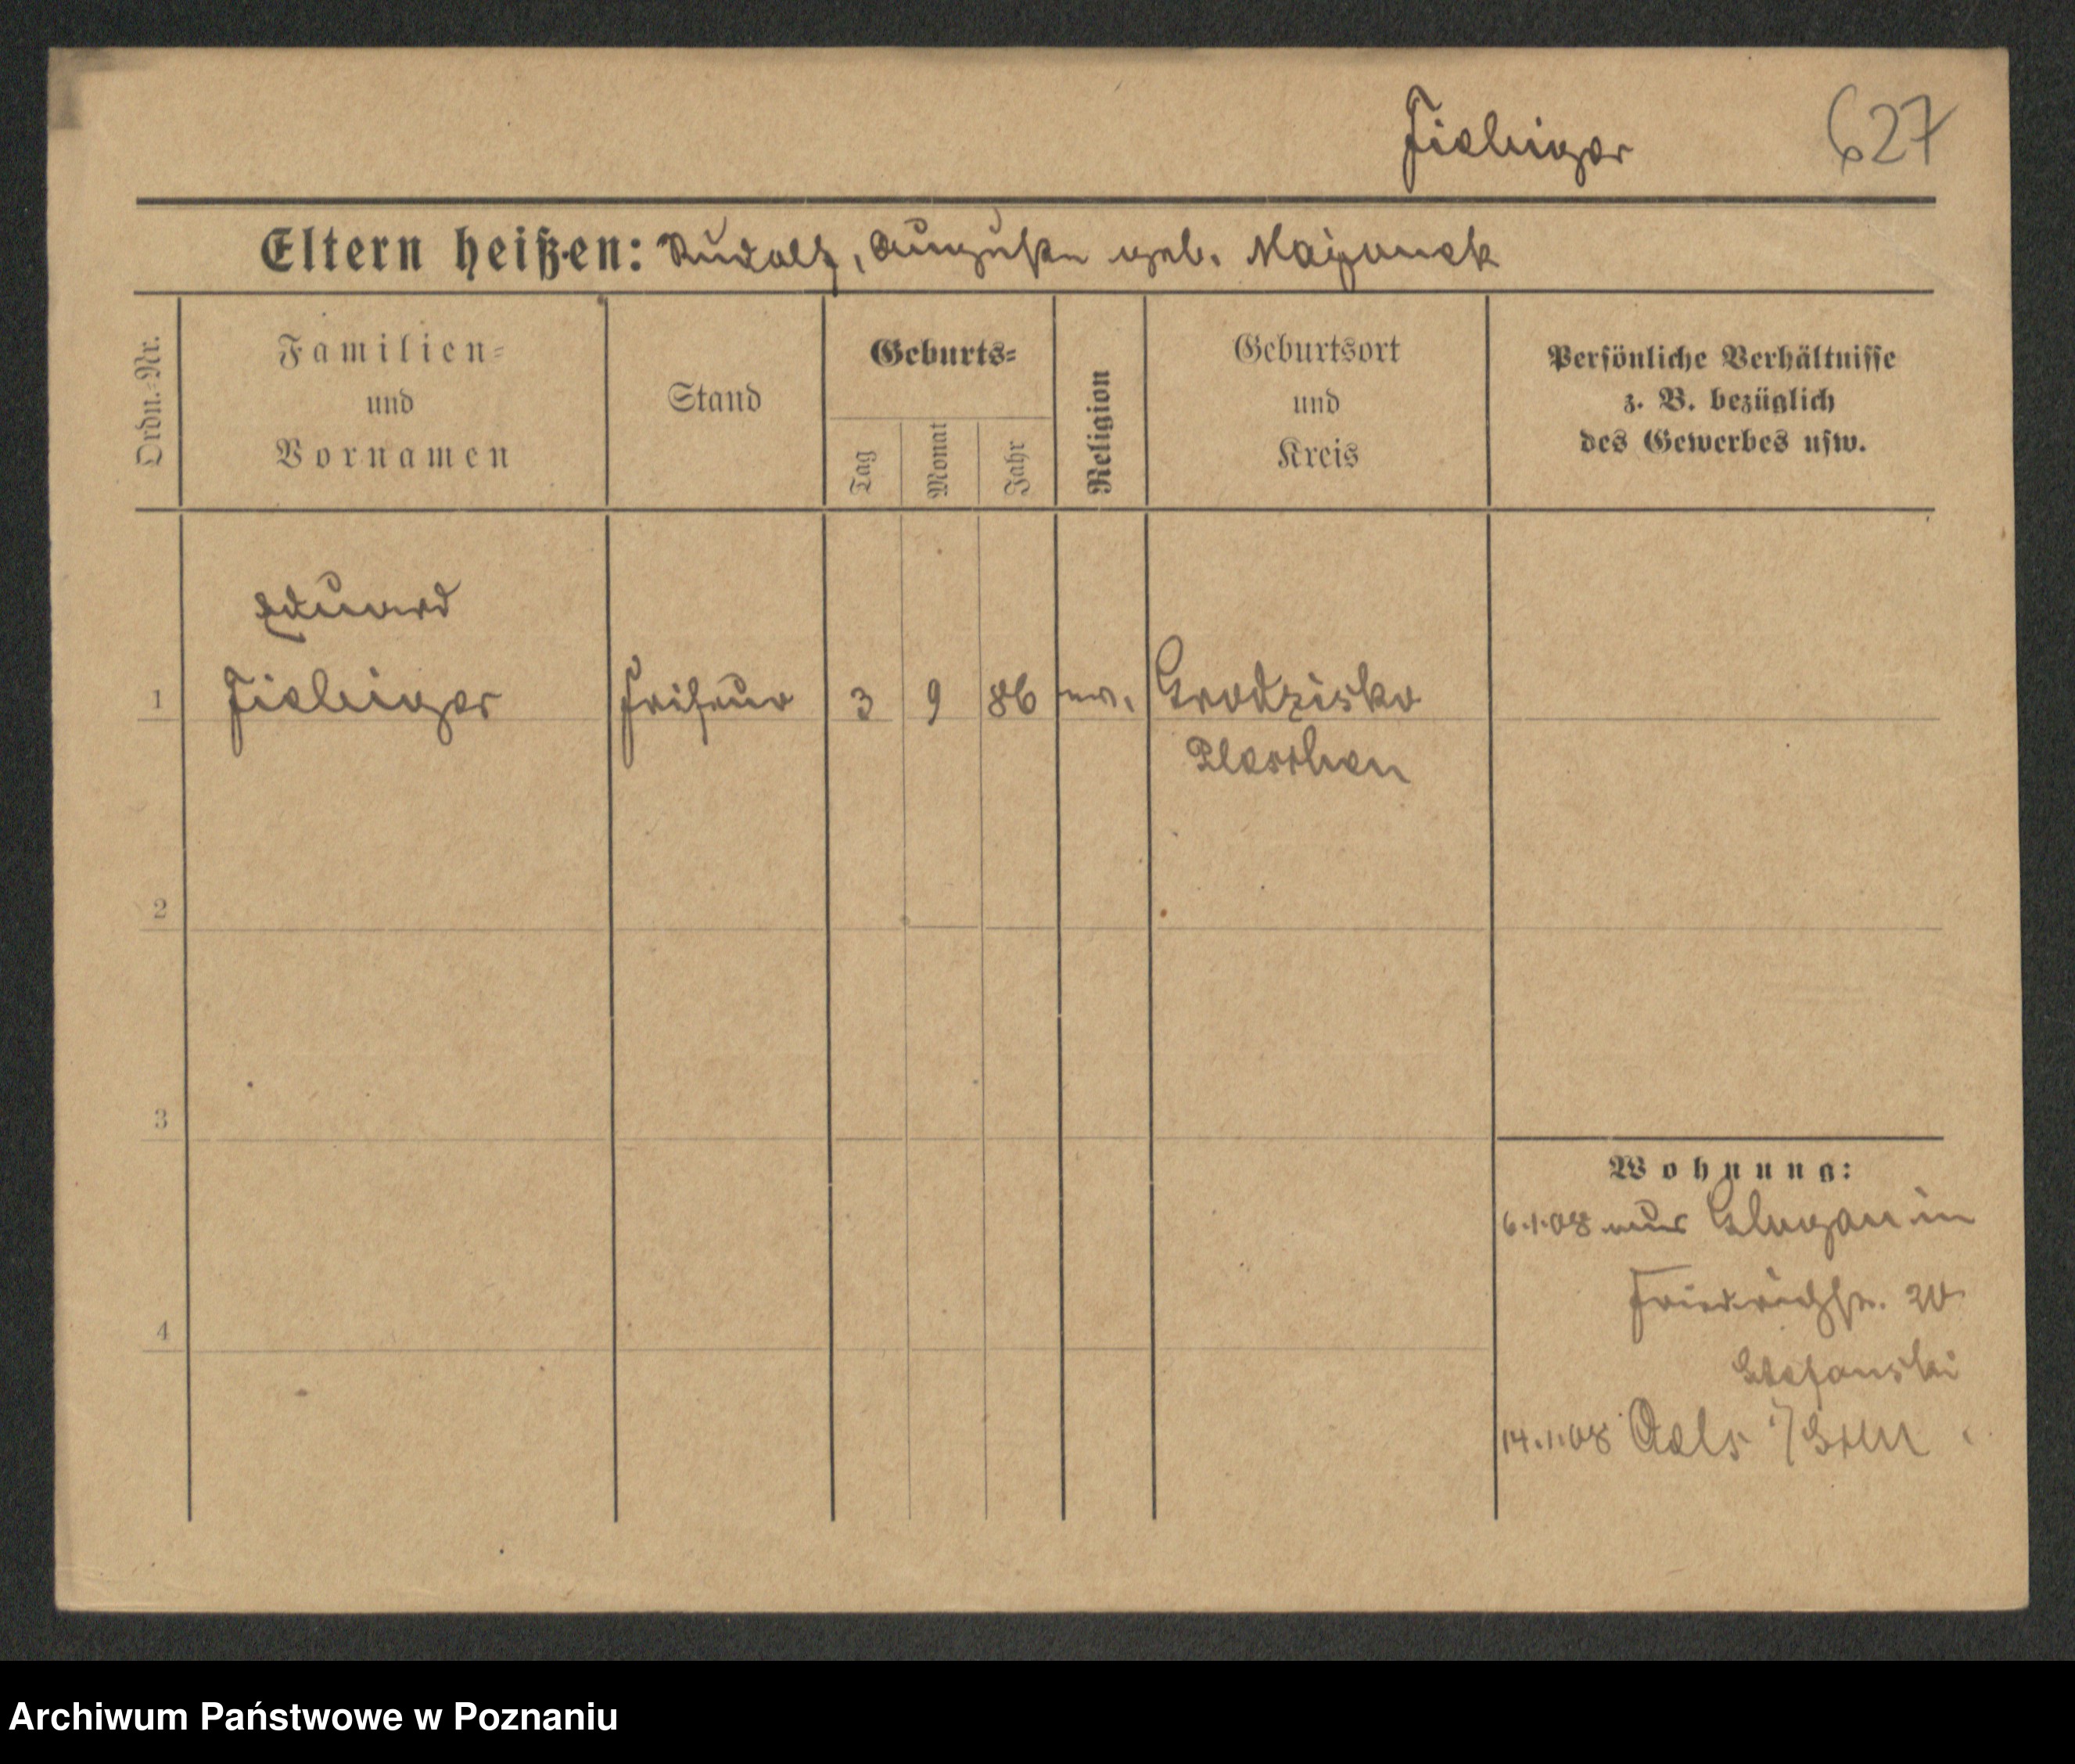 Fiebiger 627
Eltern heißen: Rudolf, Auguste geb. Majunek
Ordn.-Nr.
Familien-
und
Vornamen
Stand
Geburts-
Tag
Monat
Jahr
Religion
Geburtsort
und
Kreis
Persönliche Verhältnisse
z. B. bezüglich
des Gewerbes usw.
Eduard
1 Fiebiger Friseur 3 9 86 ev. Grodzisko
Pleschen
2
3
4
Wohnung:
6.1.08 aus Glogau in
Friedrichstr. 20
Stefanski
14.1.08 Oels i/
Archiwum Państwowe w Poznaniu